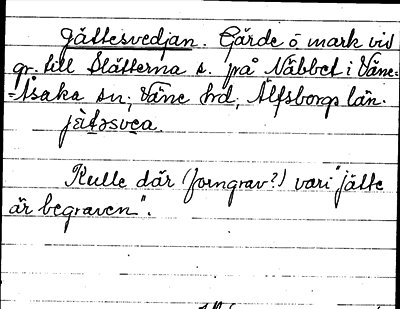 Jättesvedjan. Gärde o mark vid
gr. till Slätterna s. på Näbbet i Väne-
=Åsaka sn; Väne hd, Älfsborgs län.
jèt̯əsvea
Kulle där (forngrav?) vari "jätte
är begraven".